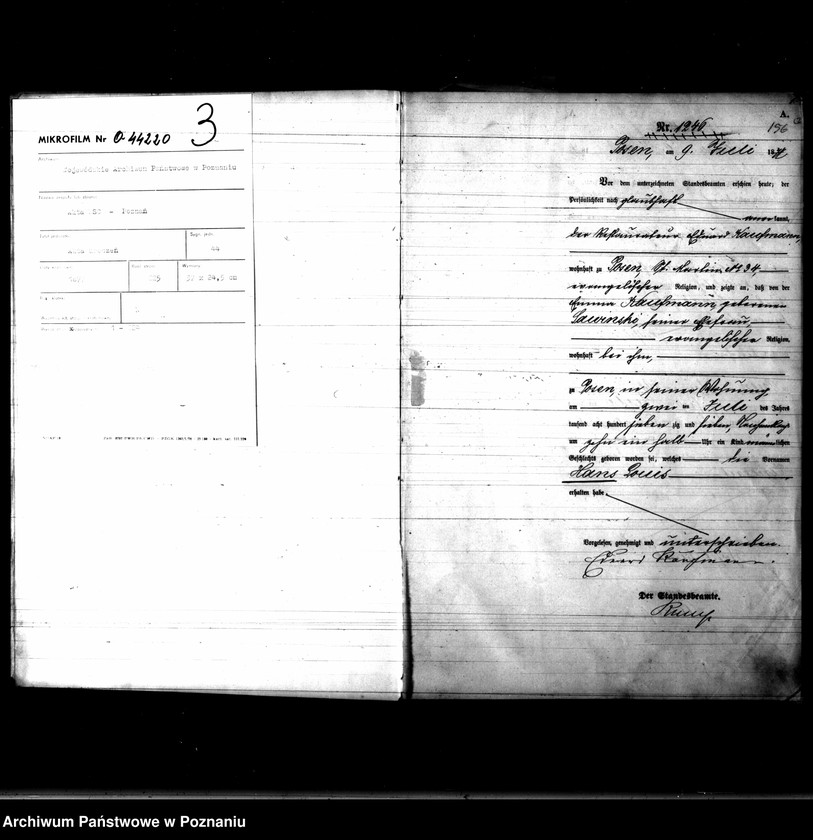 MIKROFILM Nr O-44220
3
Wojewódzkie Archiwum Państwowe w Poznaniu
Akta SC - Poznań
44
A.
196
Nr. 1246
Posen, am 9. Juli 18
Vor dem unterzeichneten Standesbeamten erschien heute, der
Persönlichkeit nach glaubhaft
kannt,
der Restaurateur Eduard Kauffmann,
wohnhaft zu Posen, St. Martin No 34,
evangelischer Religion, und zeigte an, daß von der
Emma Kauffmann, geborenen
seiner Ehefrau,
evangelischer Religion,
wohnhaft bei ihm,
zu Posen, in seiner Wohnung
am zwei ten Juli des Jahres
tausend acht hundert sieben zig und sieben, Nachmittags
um zehn ein halb Uhr ein Kind männlichen
Geschlechts geboren worden sei, welches die Vornamen
Hans Louis
erhalten habe.
Vorgelesen, genehmigt und unterschrieben.
Eduard Kauffmann.
Der Standesbeamte.
Archiwum Państwowe w Poznaniu